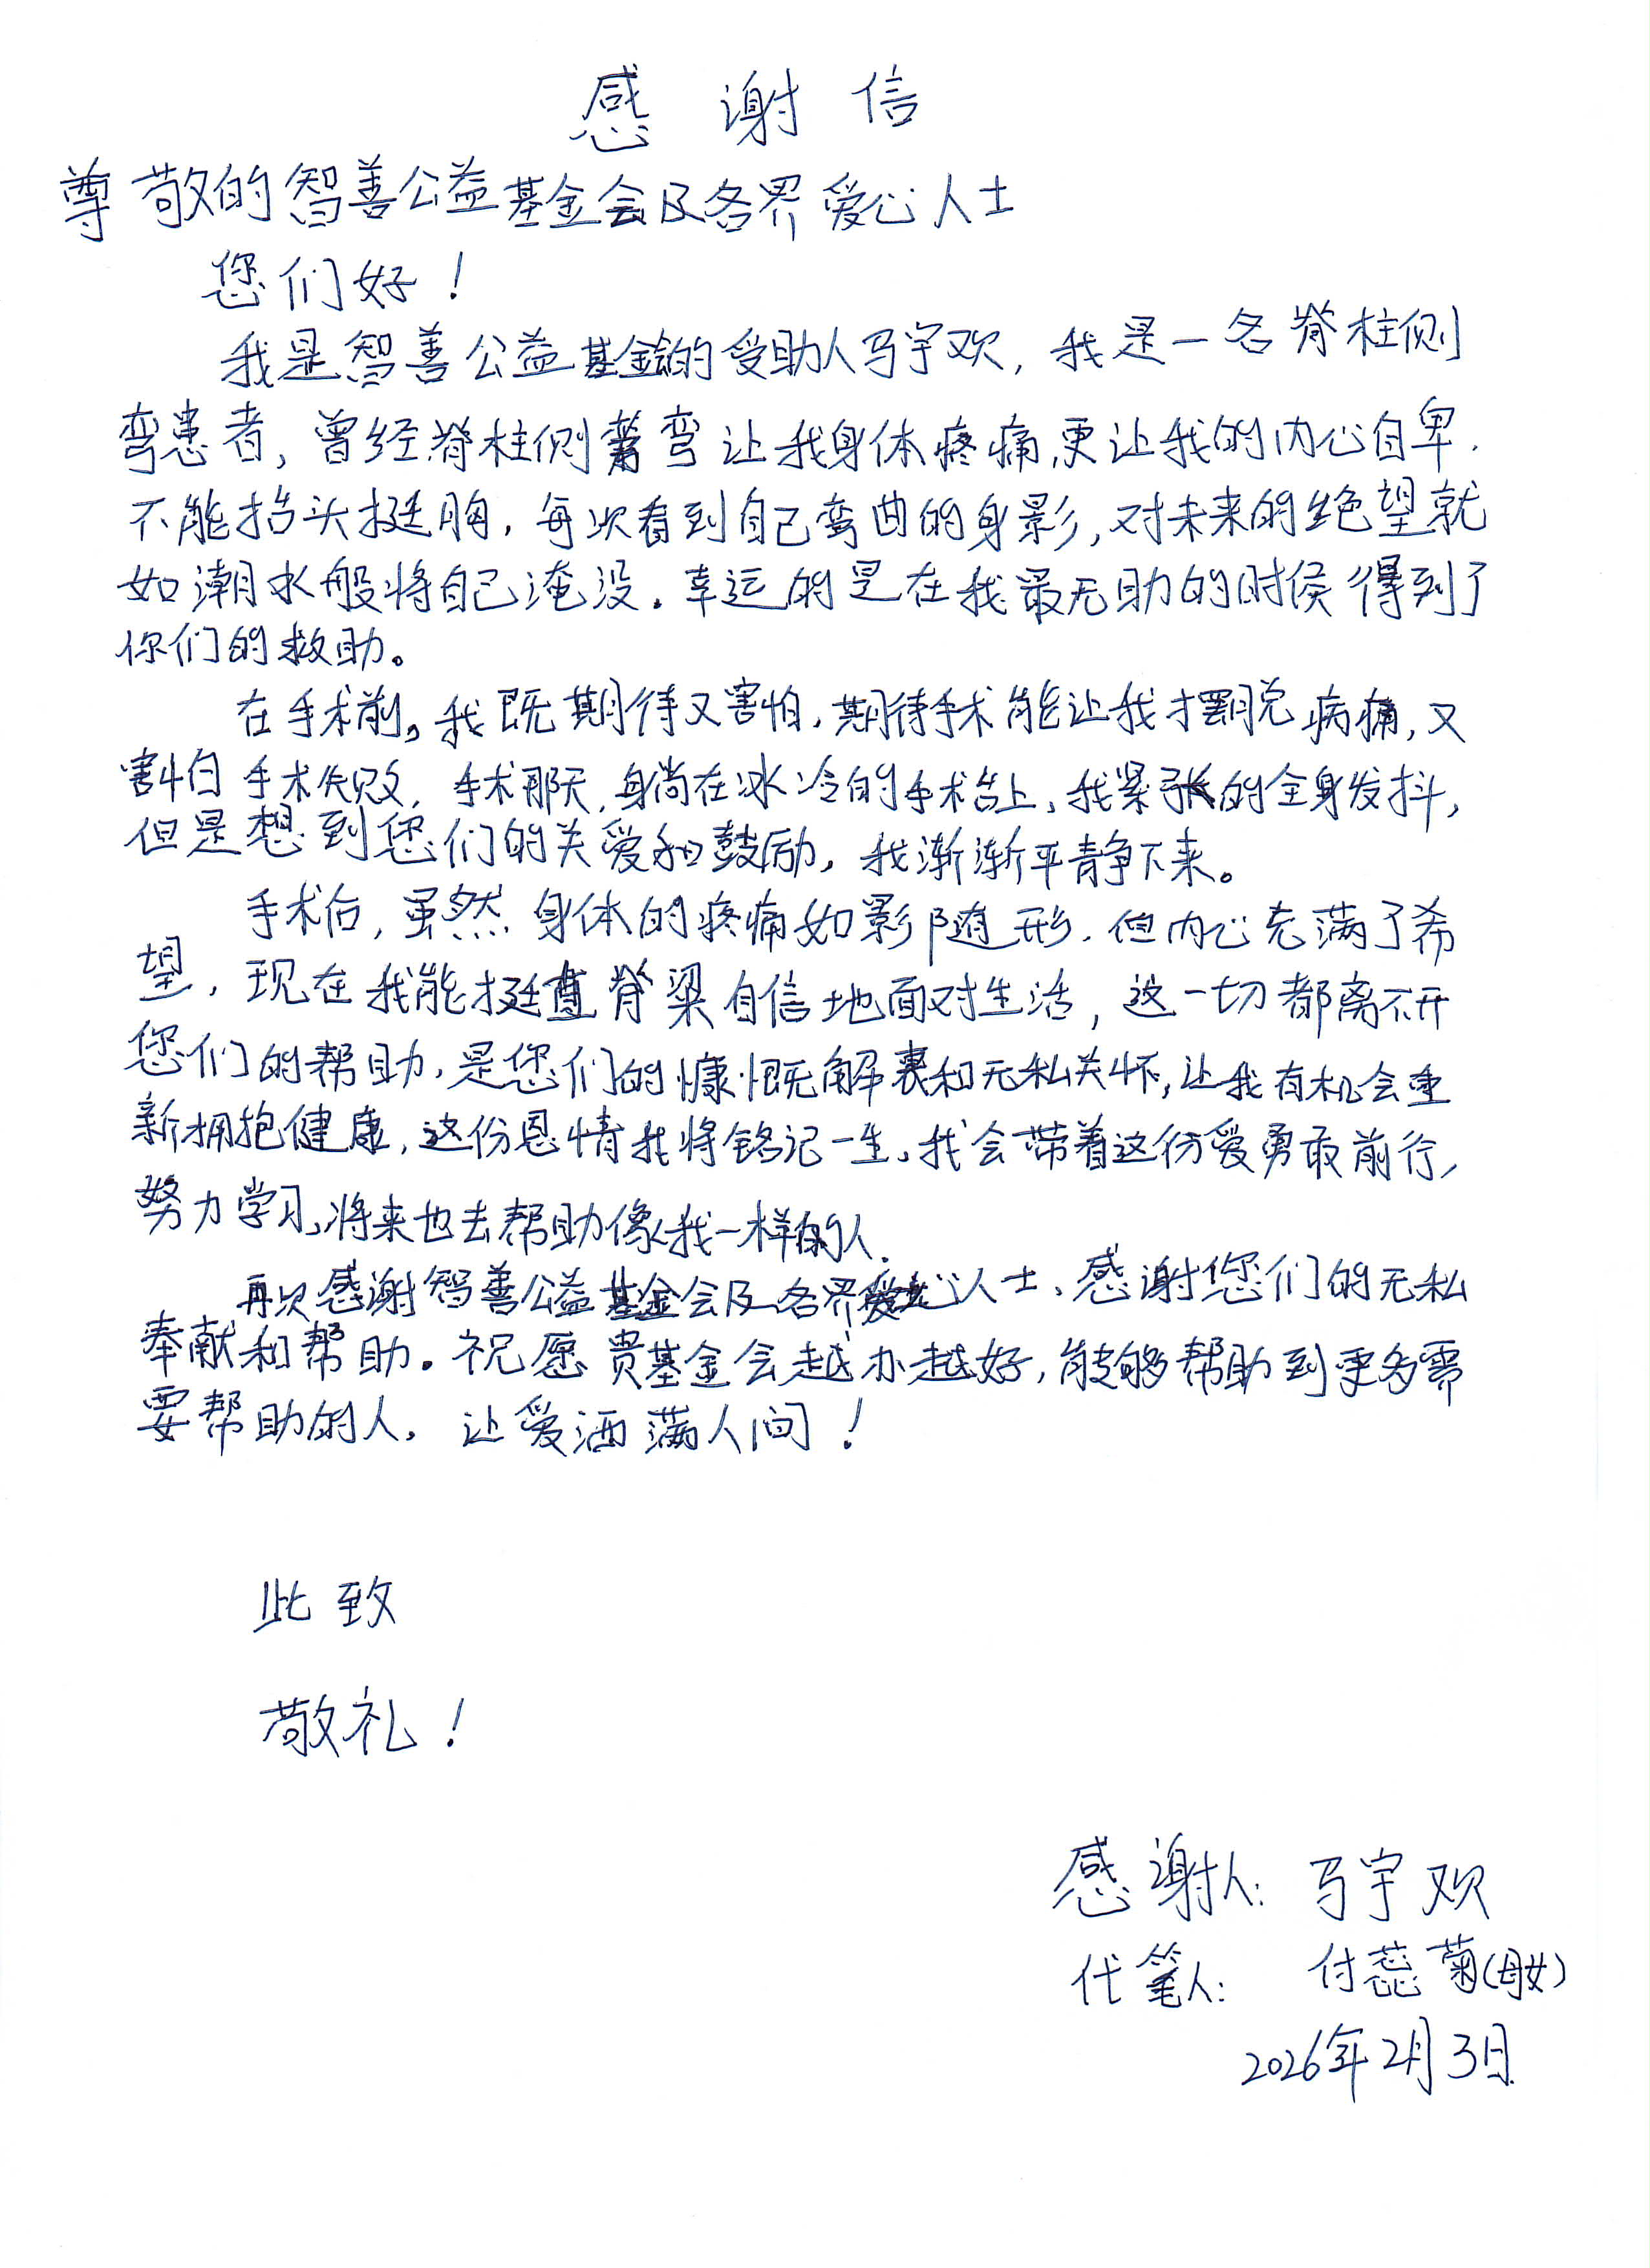 感谢信
尊敬的智善公益基金会及各界爱心人士
您们好！
我是智善公益基金会的受助人马宇欢，我是一名脊柱侧
弯患者，曾经脊柱侧弯让我身体疼痛，更让我的内心自卑.
不能抬头挺胸，每次看到自己弯曲的身影，对未来的绝望就
如潮水般将自己淹没。幸运的是在我最无助的时候得到了
你们的救助。
在手术前，我既期待又害怕，期待手术能让我摆脱病痛，又
害怕手术失败，手术那天，身尚在冰冷的手术台上，我紧张的全身发抖，
但是想到您们的关爱和鼓励，我渐渐平静下来。
手术后，虽然身体的疼痛如影随形.但内心充满了希
望，现在我能挺直脊梁自信地面对生活，这一切都离不开
您们的帮助，是您们的慷慨解囊和无私关怀，让我有机会重
新拥抱健康，这份恩情我将铭记一生，我会带着这份爱勇敢前行，
努力学习，将来也去帮助像我一样的人.
再次感谢智善公益基金会及各界爱心人士、感谢您们的无私
奉献和帮助。祝愿贵基金会越办越好，能够帮助到更多需
要帮助的人，让爱洒满人间！
此致
敬礼！
感谢人：马宇欢
代笔人：付蕊菊(母女)
2026年2月3日